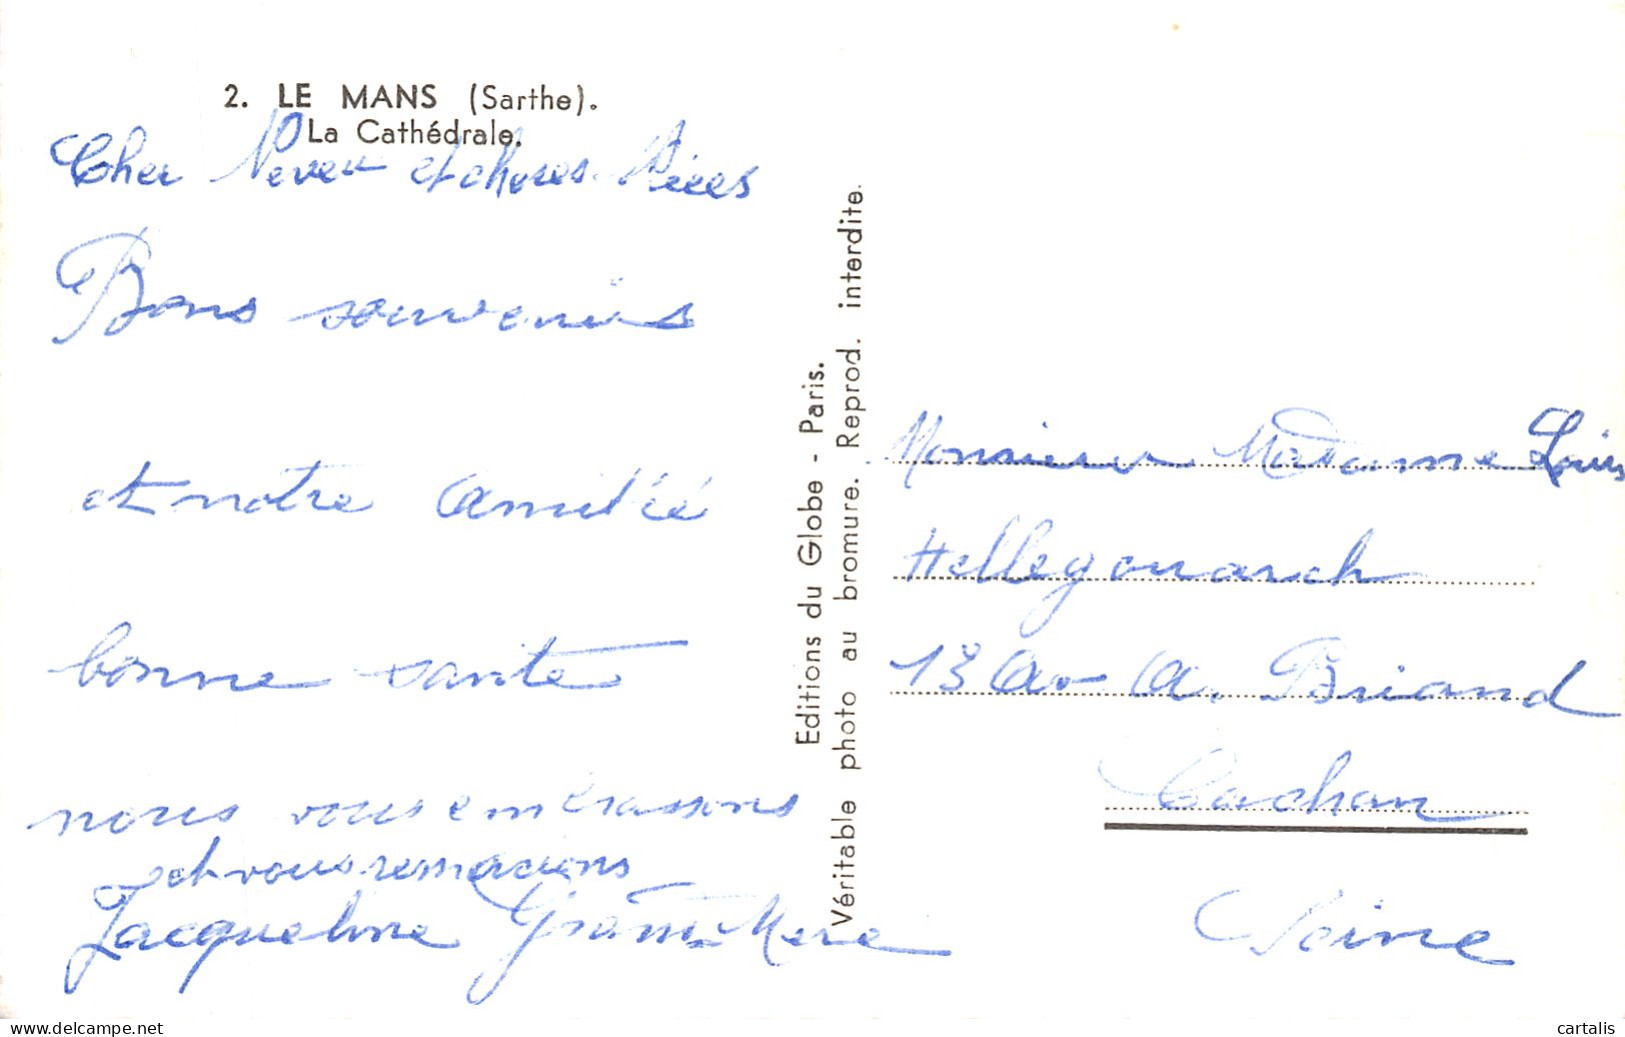 2. LE MANS (Sarthe).
La Cathédrale.
Cher Neveu et cheres Nieces
Bons souvenirs
et notre amitié
bonne sante
nous vous embrassons
et vous remercions
Jacqueline Grand-Mere
Editions du Globe - Paris.
Véritable photo au bromure. Reprod. interdite.
Monsieur Madame Louis
Hellegouarch
13 Av A. Briand
Cachan
Seine
www.delcampe.net
cartalis